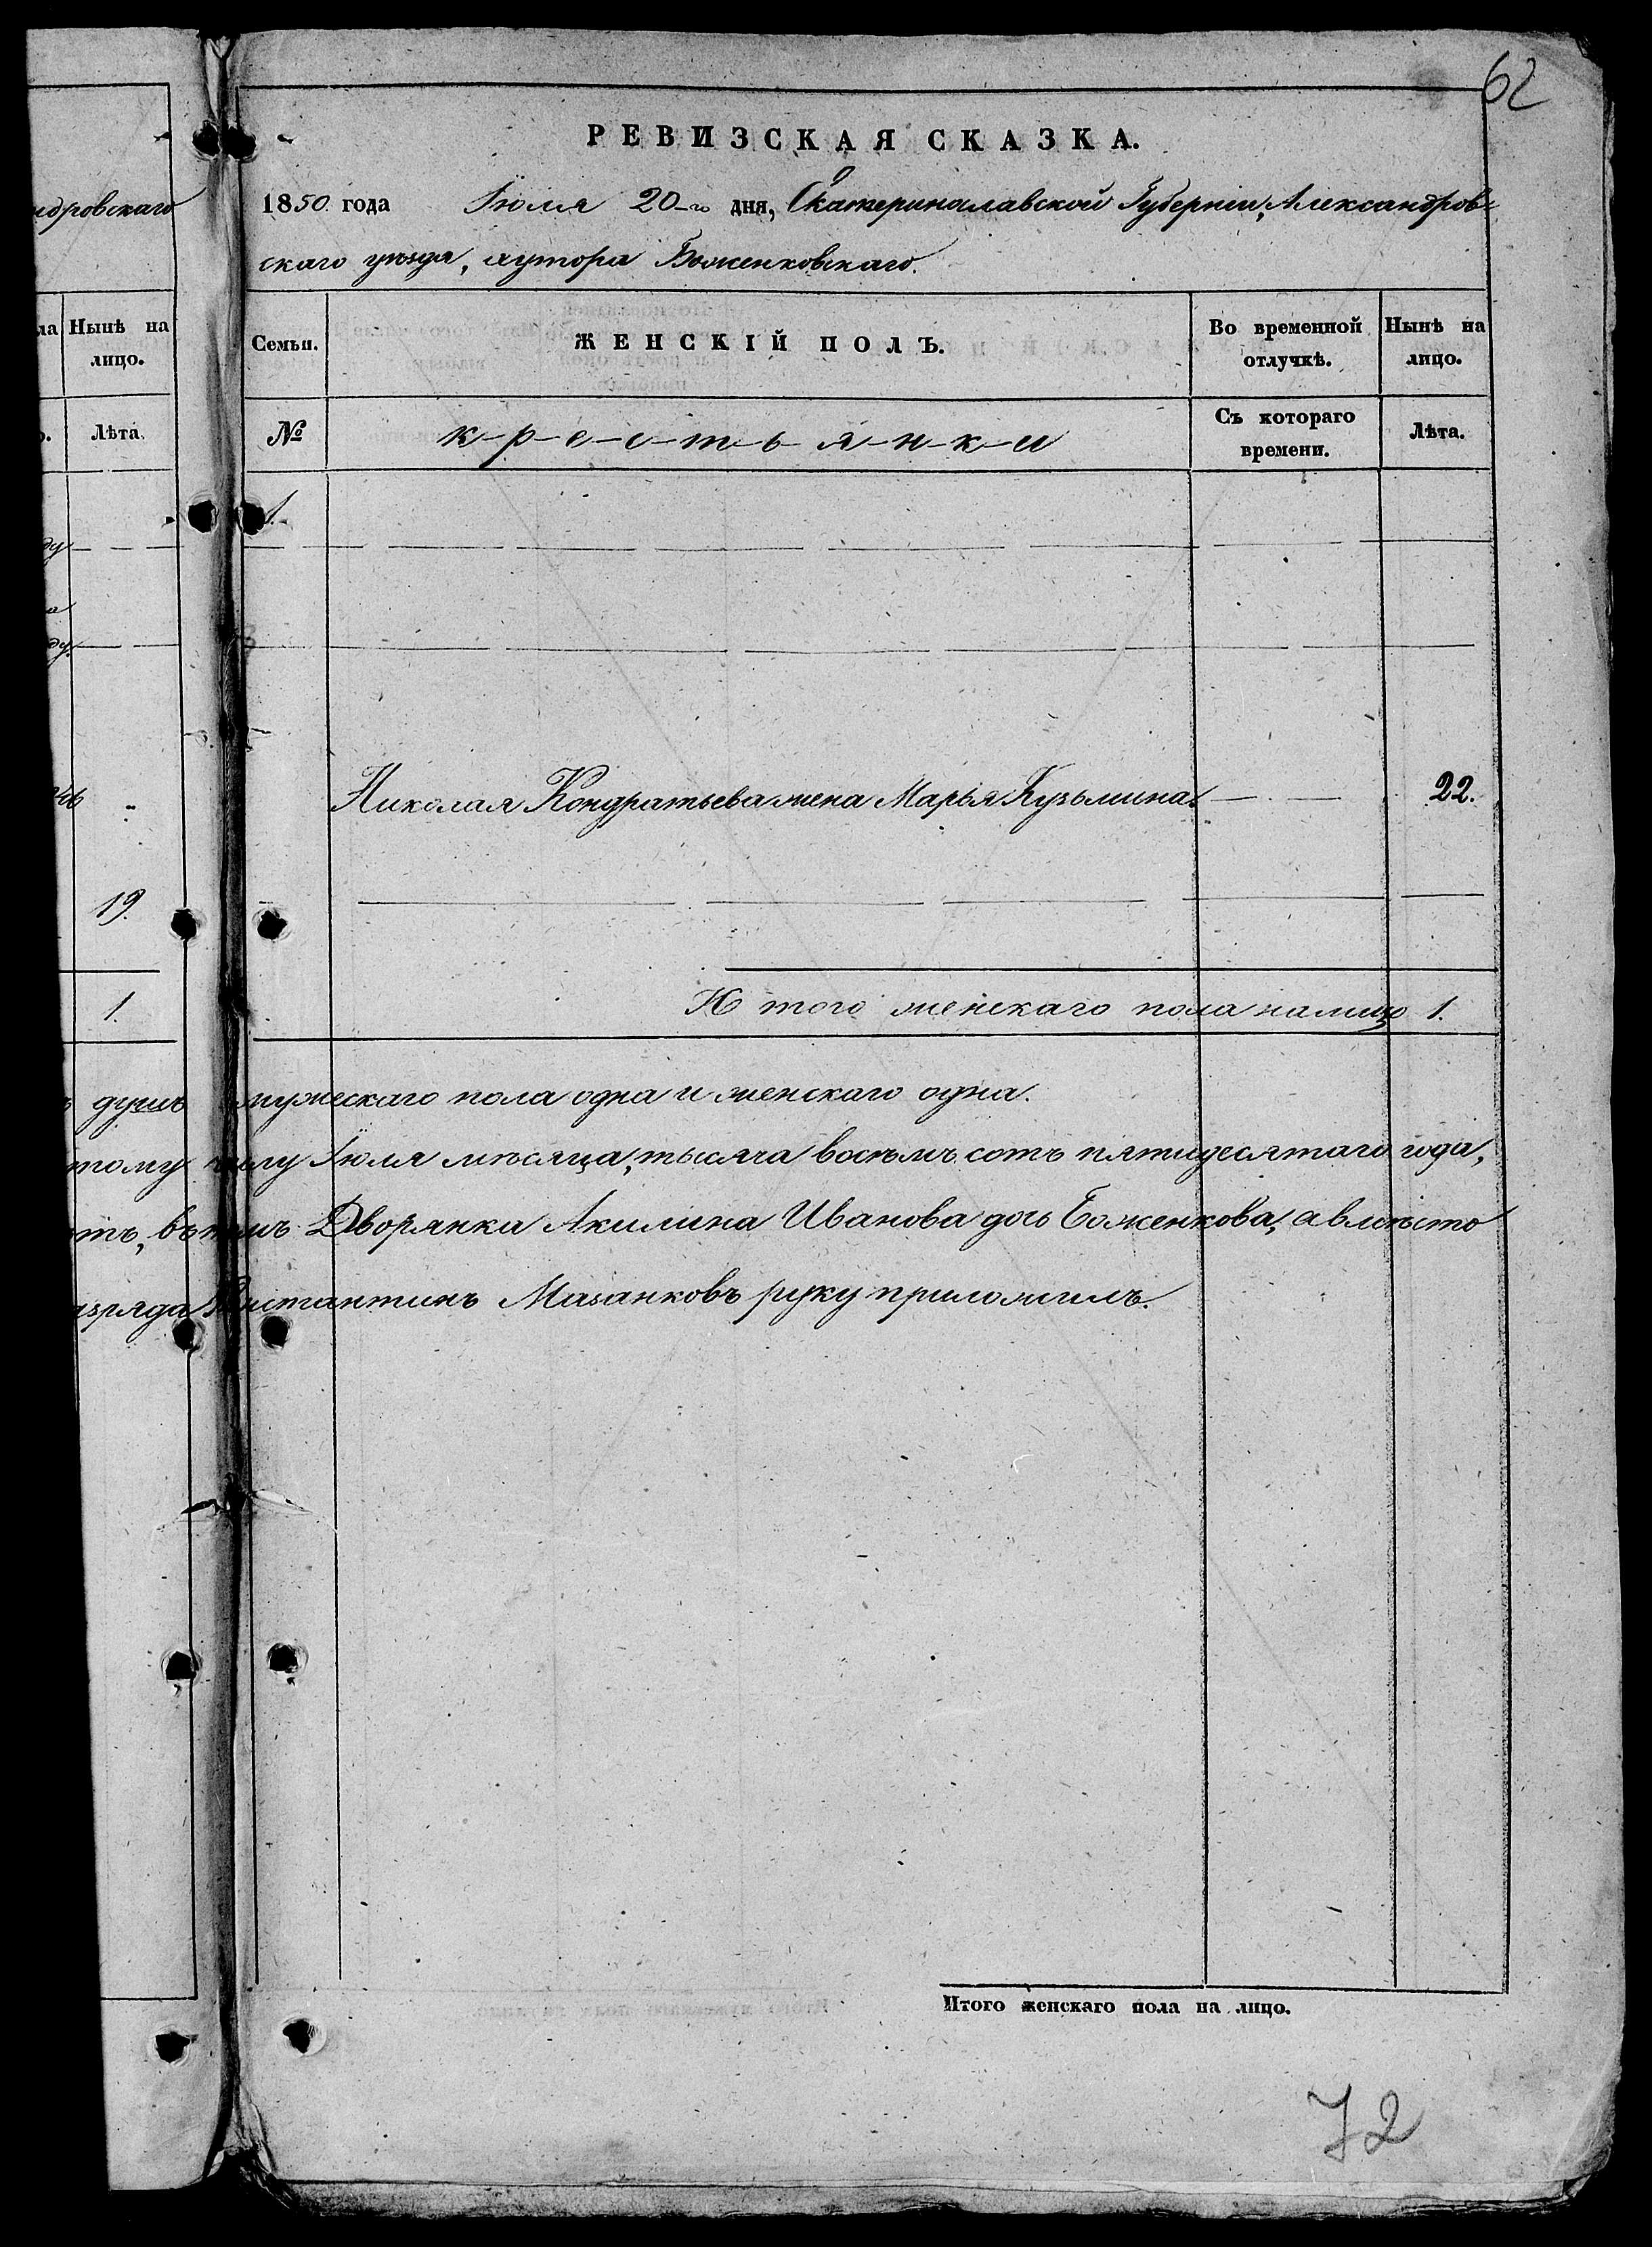 62
РЕВИЗСКАЯ СКАЗКА.
1850 года Іюля 20-го дня, Екатеринославской Губерніи, Александров-
скаго уѣзда, хутора Боженковскаго.
ндровскаго
ла Нынѣ на лицо.
Лѣта.
ду
ду.
19.
1.
Семьи.
ЖЕНСКІЙ ПОЛЪ.
Во временной отлучкѣ.
Нынѣ на лицо.
№
к-р-е-с-т-ь-я-н-к-и
Съ котораго времени.
Лѣта.
1.
Николая Кондратьева жена Марья Кузьмина. 22.
И того женскаго пола налицо 1.
душъ мужескаго пола одна и женскаго одна.
тому числу Іюля мѣсяца, тысяча восемь сотъ пятидесятаго года,
ть, въ томъ Дворянка Акилина Иванова дочь Боженкова, а вмѣсто
азряда Константинъ Мазанковъ руку приложилъ.
Итого женскаго пола на лицо.
72